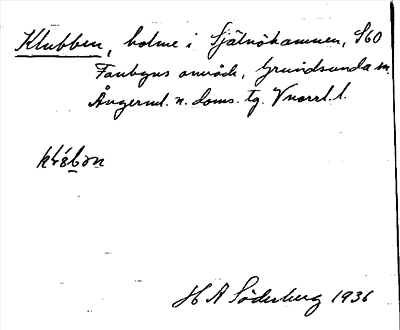 Klubben, holme i Själnöhamnen, SO
Faubyns område, Grundsunda sn.
Ångerml. n. doms. tg. Vnorrl. l.
H A Söderberg 1936